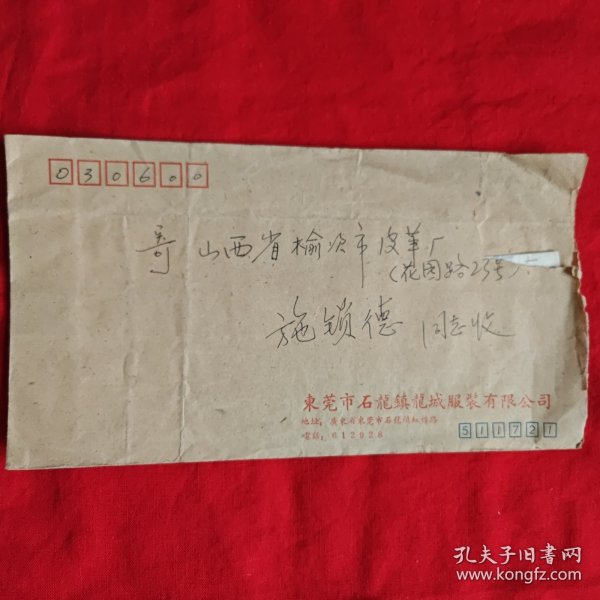 030600
寄 山西省榆次市皮革厂
(花园路23号)
施锁德 同志收
東莞市石龍鎮龍城服裝有限公司
地址：廣東省東莞市石龍鎮紅棉路
電話：612928
511721
孔夫子旧书网
www.kongfz.com